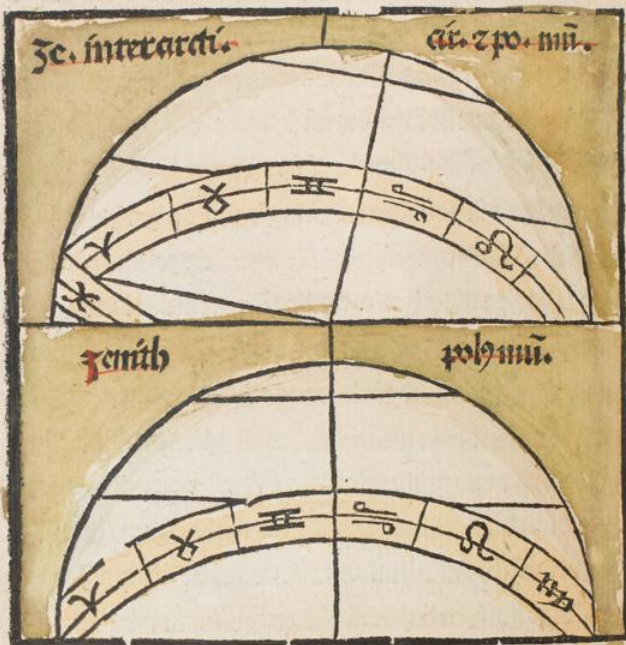 ze. interarcti.
cir. ⁊ po. mū.
♓ ♈ ♉ ♊ ♋ ♌
zenith
polꝰ mū.
♈ ♉ ♊ ♋ ♌ ♍